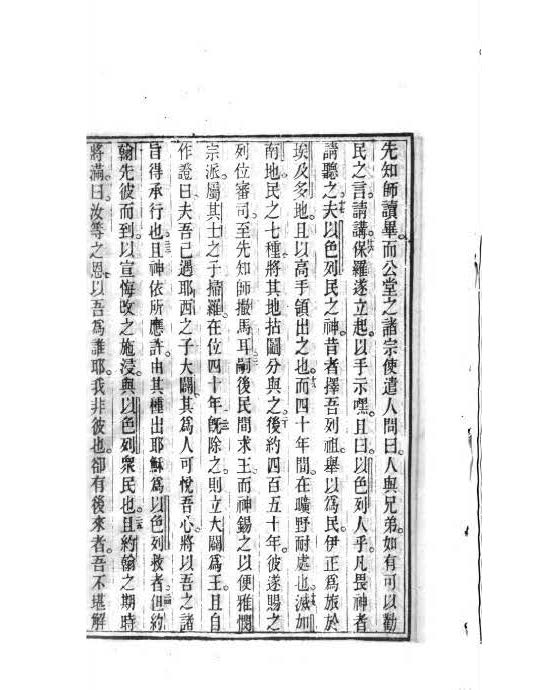 先知師讀畢。而公堂之諸宗使遣人問曰。人與兄弟。如有可以勸
民之言。請講。保羅遂立起。以手示嘿。且曰。以色列人乎。凡畏神者
請聽之。夫以色列民之神。昔者擇吾列祖。舉以為民。伊正為旅於
埃及多地。且以高手領出之也。而四十年間。在曠野耐處也。滅加
南地民之七種。將其地拈鬮分與之。後約四百五十年。彼遂賜之
列位審司。至先知師撒馬耳。嗣後民間求王。而神錫之以便雅憫
宗派。屬其士之子掃羅。在位四十年。既除之。則立大闢為王。且自
作證曰。夫吾已遇耶西之子大闢。其為人可悅吾心。將以吾之諸
旨得承行也。且神依所應許。由其種出耶穌為以色列救者。但約
翰先彼而到。以宣悔改之施浸。與以色列眾民也。且約翰之期時
將滿。曰。汝等之恩。以吾為誰耶。我非彼也。卻有後來者。吾不堪解